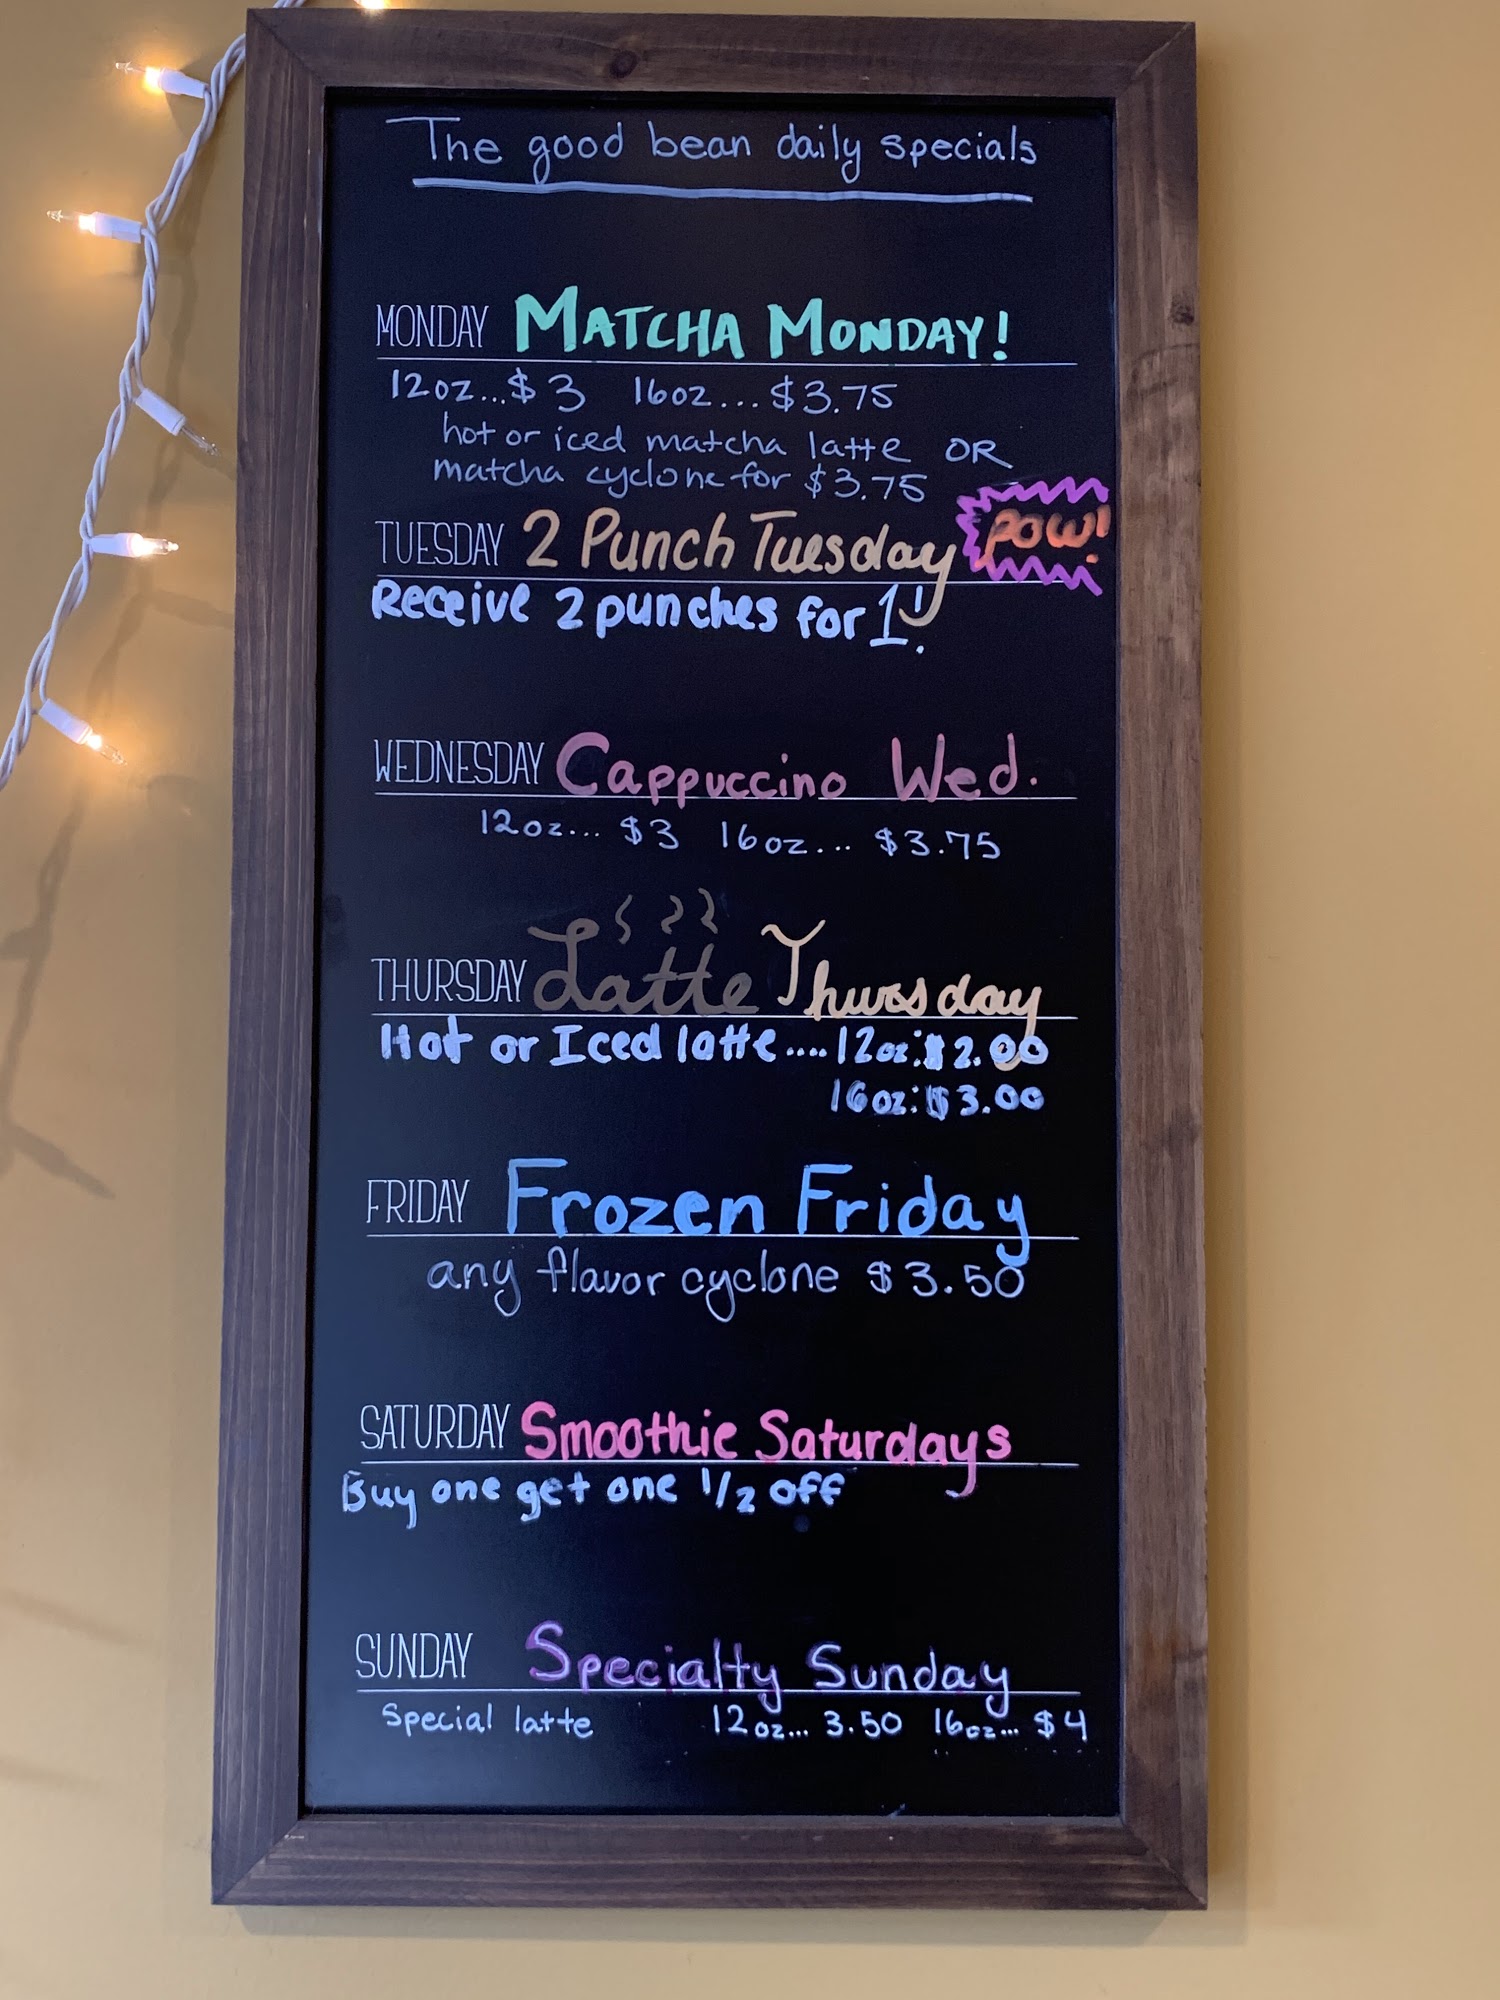 The good bean daily specials
MONDAY MATCHA MONDAY!
12oz...$3 16oz...$3.75
hot or iced matcha latte OR
matcha cyclone for $3.75
TUESDAY 2 Punch Tuesday POW!
Receive 2 punches for 1!
WEDNESDAY Cappuccino Wed.
12oz... $3 16oz... $3.75
THURSDAY Latte Thursday
Hot or Iced latte.... 12oz: $2.00
16oz: $3.00
FRIDAY Frozen Friday
any flavor cyclone $3.50
SATURDAY Smoothie Saturdays
Buy one get one 1/2 off
SUNDAY Specialty Sunday
Special latte 12oz... 3.50 16oz... $4